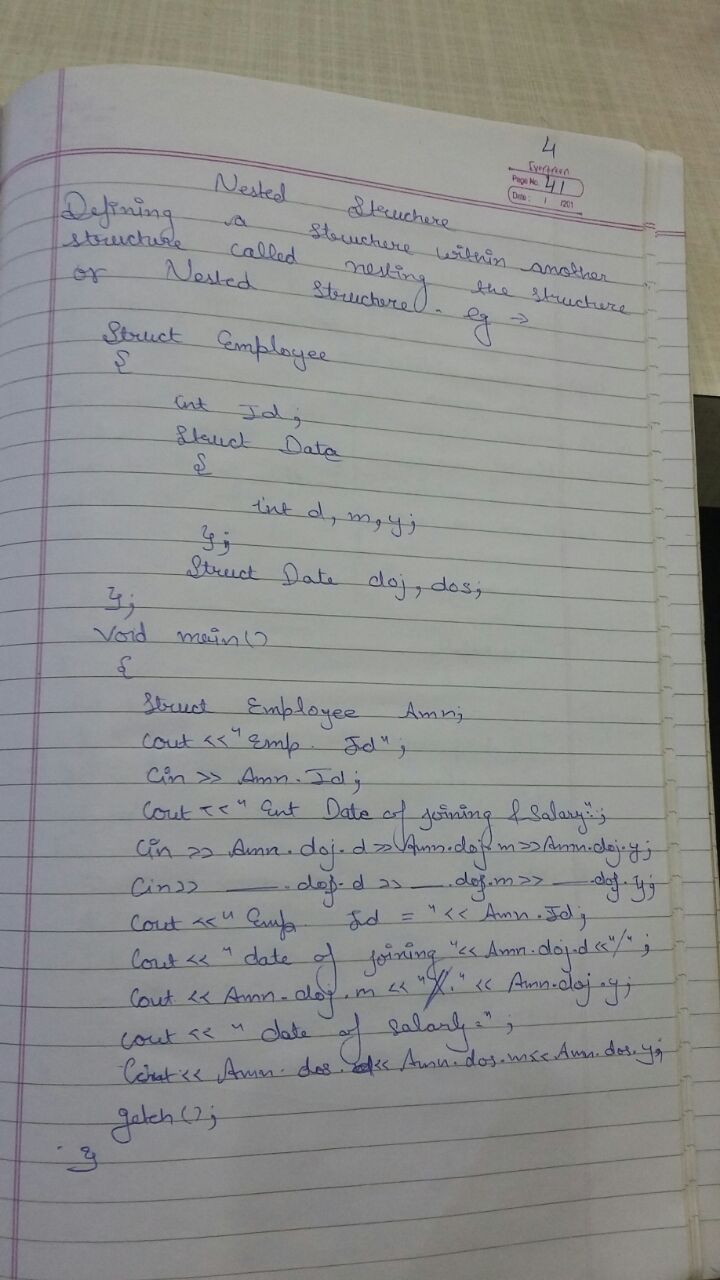 4
Evergreen
Page No. 41
Date: / /201
Nested Structure
Defining a structure within another
structure called nesting the structure
or Nested Structure. eg →
Struct Employee
{
int Id;
Struct Date
{
int d, m, y;
};
Struct Date doj, dos;
};
Void main()
{
Struct Employee Amn;
Cout <<"Emp. Id";
Cin >> Amn.Id;
Cout <<" Ent Date of joining & Salary=";
Cin >> Amn.doj.d >> Amn.doj.m >> Amn.doj.y;
Cin >> ___.dos.d >> ___.dos.m >> ___.dos.y;
Cout <<" Emp. Id = "<< Amn.Id;
Cout << " date of joining "<< Amn.doj.d <<"/";
Cout << Amn.doj.m << "/." << Amn.doj.y;
cout << " date of salary=";
Cout << Amn.dos.d << Amn.dos.m << Amn.dos.y;
getch();
}